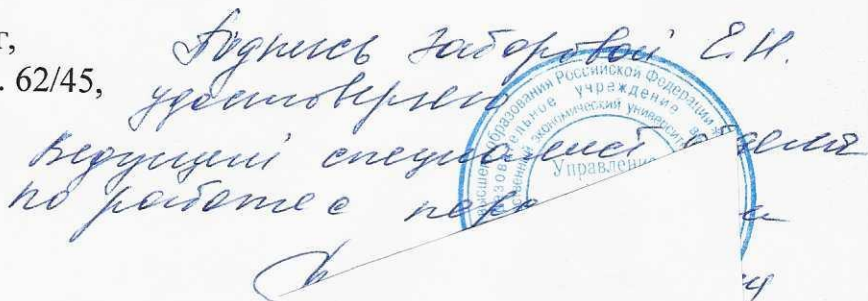 г,
. 62/45,
Подпись Заборовой Е.Н.
удостоверяю
ведущий специалист отдела
по работе с перс
высшего образования Российской Федерации
учреждение
ственный экономический университет
Управление